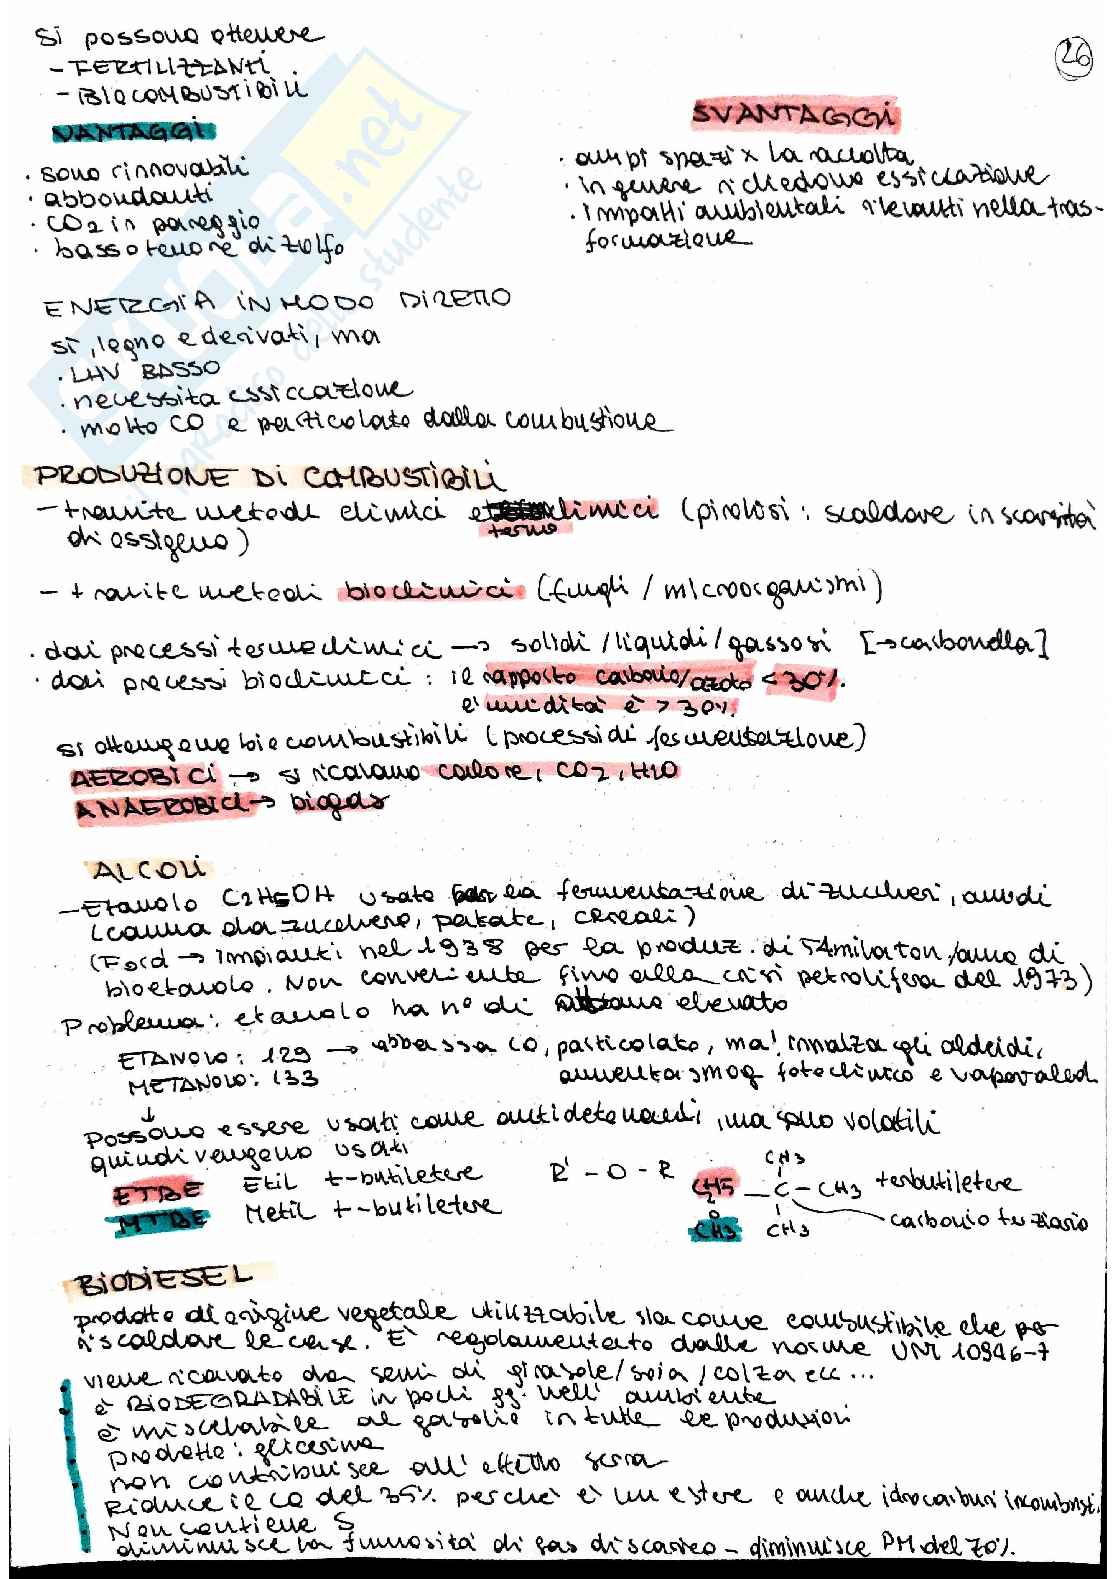 26
si possono ottenere
- FERTILIZZANTI
- BIOCOMBUSTIBILI
VANTAGGI
. sono rinnovabili
. abbondanti
. CO2 in pareggio
. basso tenore di zolfo
SVANTAGGI
. ampi spazi x la raccolta
. in genere richiedono essiccazione
. impatti ambientali rilevanti nella tras-
formazione
ENERGIA IN MODO DIRETTO
si, legno e derivati, ma
. LHV BASSO
. necessita essiccazione
. molto CO e particolato dalla combustione
PRODUZIONE DI COMBUSTIBILI
- tramite metodi chimici e termo chimici (pirolisi: scaldare in scarsità
di ossigeno)
- tramite metodi biochimici (funghi / microorganismi)
. dai processi termochimici → solidi /liquidi/gassosi [→carbonella]
. dai processi biochimici: il rapporto carbonio/azoto <30%.
e umidità è >30%
si ottengono biocombustibili (processi di fermentazione)
AEROBICI → si ricavano calore, CO2, H2O
ANAEROBICI → biogas
ALCOLI
- Etanolo C2H5OH usato per la fermentazione di zuccheri, amidi
(canna da zucchero, patate, cereali)
(Ford → impianti nel 1938 per la produz. di 54mila ton/anno di
bioetanolo. Non conveniente fino alla crisi petrolifera del 1973)
Problema: etanolo ha n° di ottano elevato
ETANOLO: 129 → abbassa CO, particolato, ma innalza gli aldeidi,
METANOLO: 133 aumenta smog fotochimico e
↓
Possono essere usati come antidetonanti, ma sono volatili
quindi vengono usati
ETBE Etil t-butiletere
MTBE Metil t-butiletere
R' - O - R
CH3
C2H5 — C — CH3 terbutiletere
o
CH3 CH3
carbonio terziario
BIODIESEL
prodotto di origine vegetale utilizzabile sia come combustibile che per
riscaldare le case. E' regolamentato dalle norme UNI 10946-7
viene ricavato da semi di girasole/soia/colza ecc...
è BIODEGRADABILE in pochi gg. nell' ambiente
è miscelabile al gasolio in tutte le proporzioni
Prodotto: glicerina
non contribuisce all' effetto serra
Riduce il CO del 35% perchè è un estere e anche idrocarburi incombusti.
Non contiene S
diminuisce la fumosità di gas di scarico - diminuisce PM del 70%.
skuola.net
il paradiso dello studente